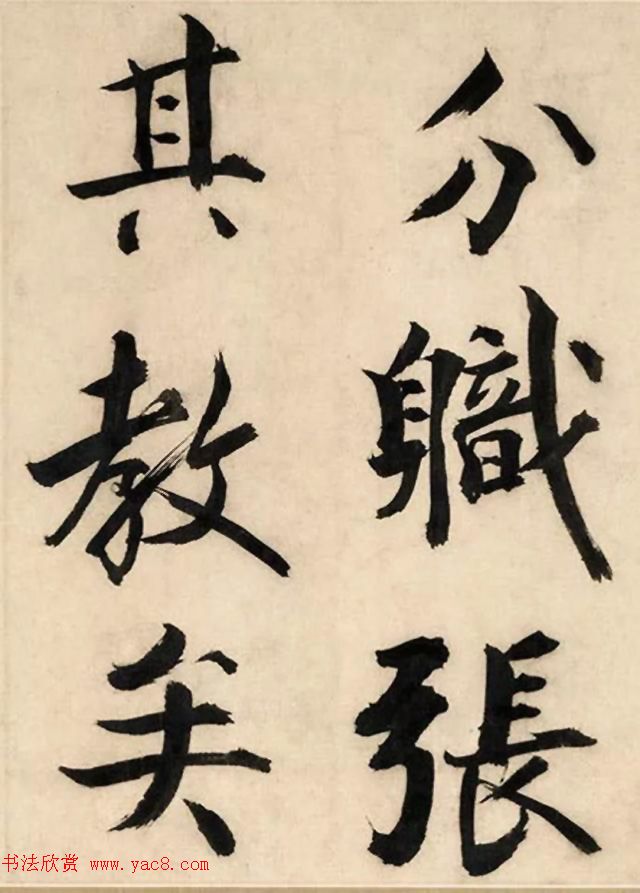 分職張
其教矣
书法欣赏 www.yac8.com